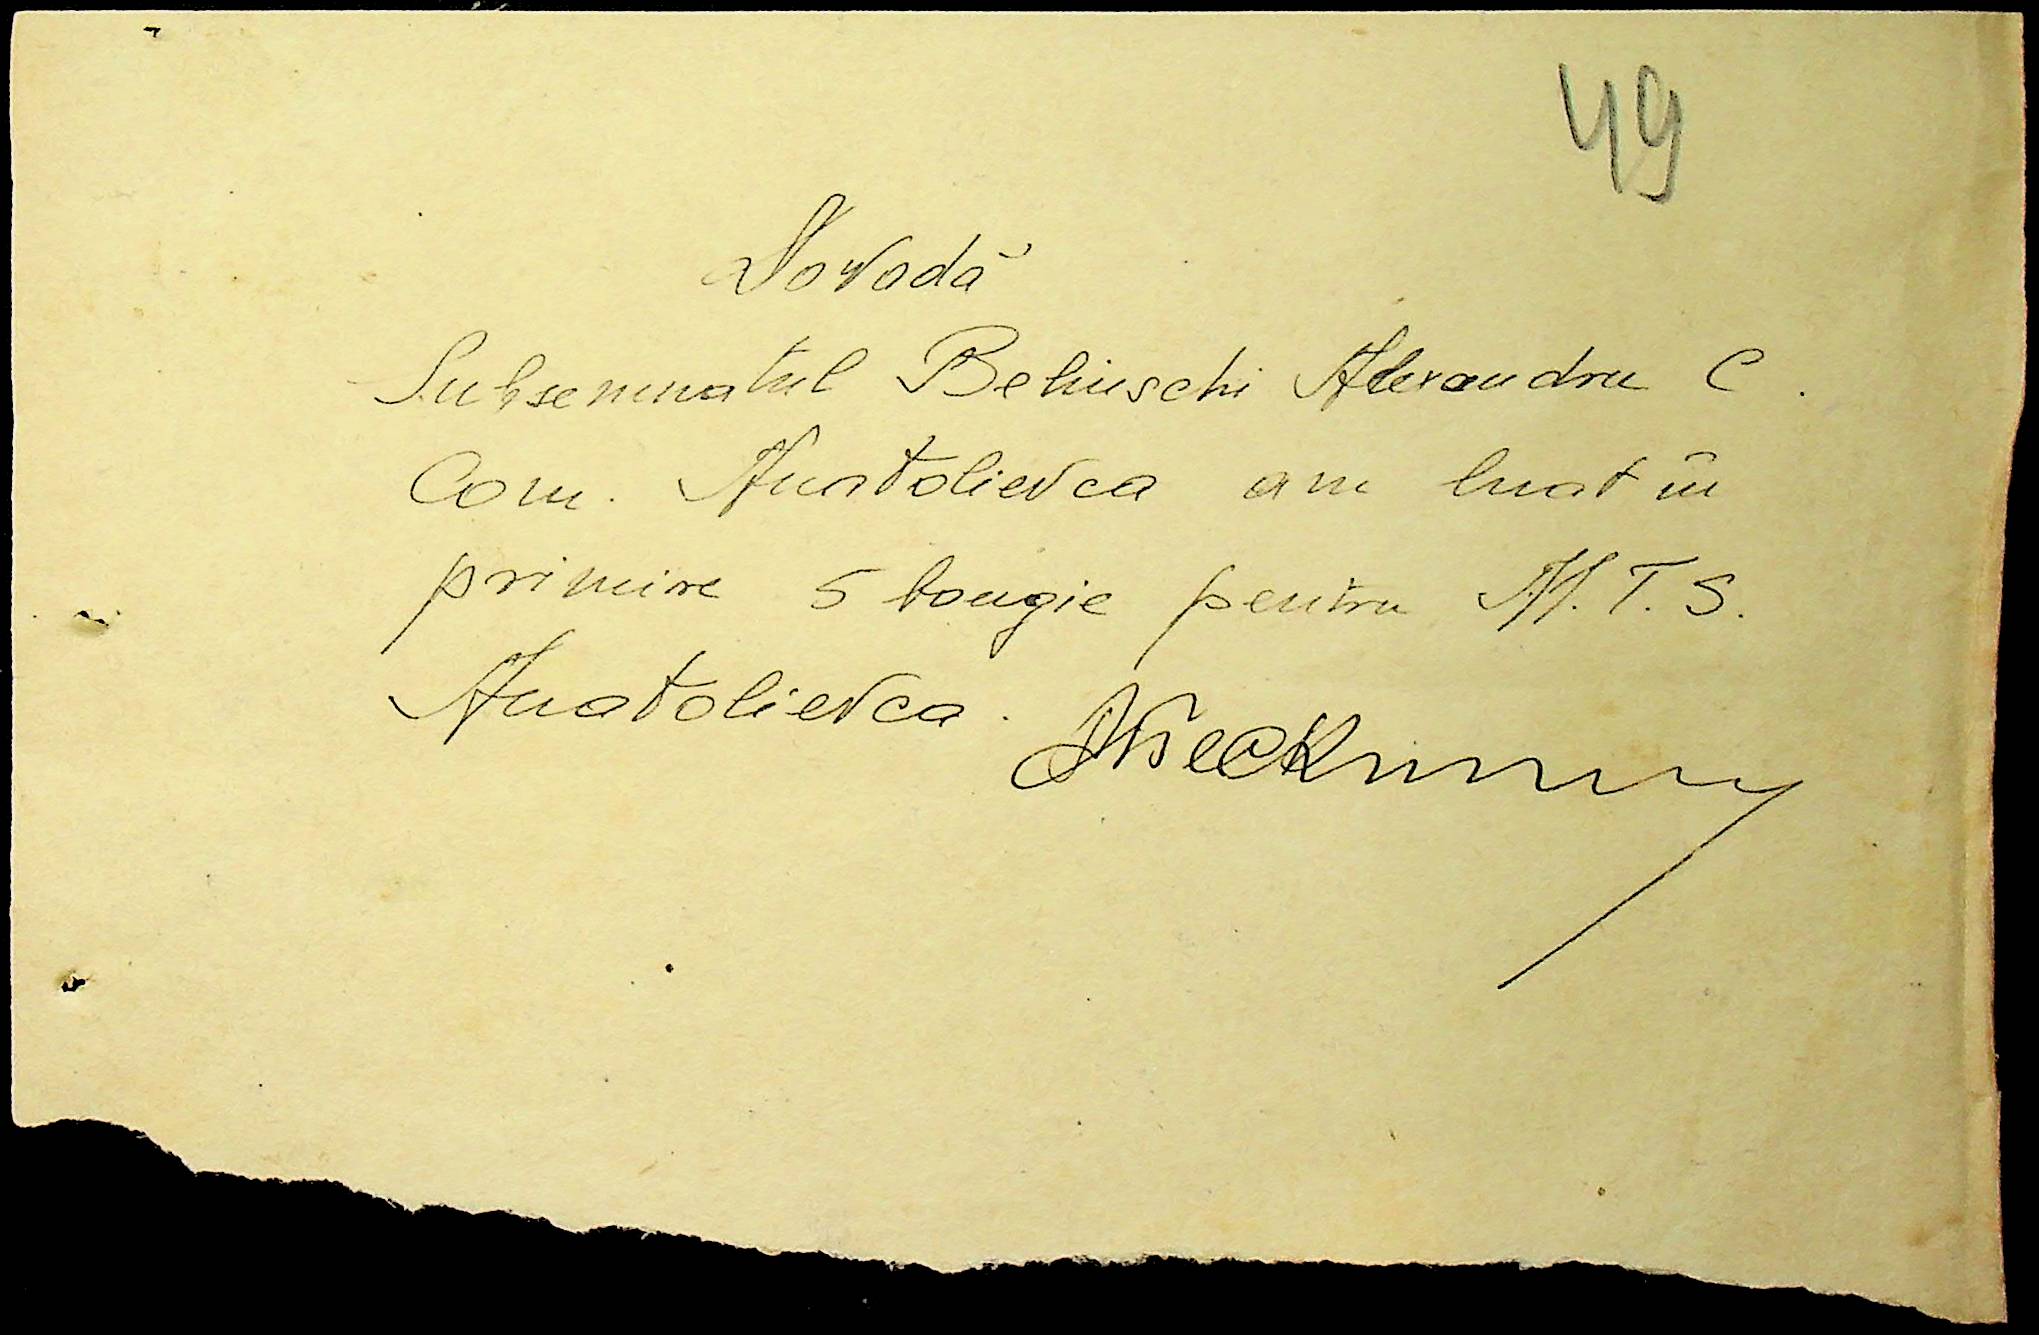 49
Dovadă
Subsemnatul Belinschi Alexandru C.
Com. Anatolievca am luat în
primire 5 bougie pentru M.T.S.
Anatolievca.